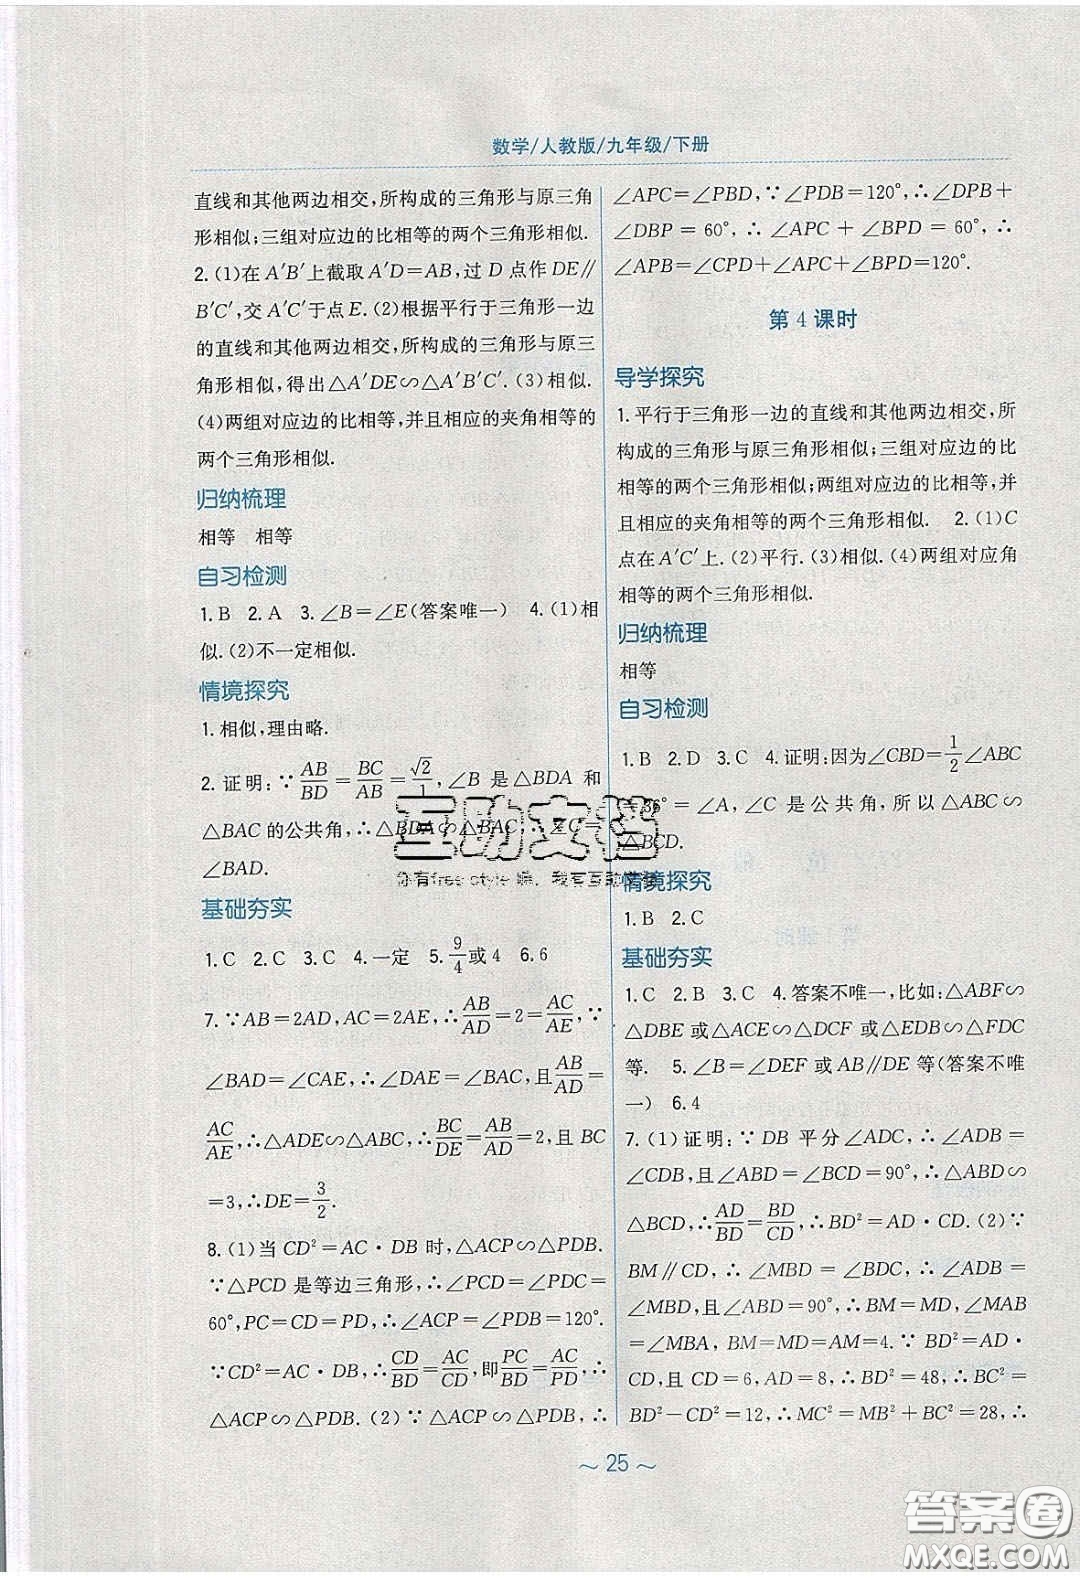 数学/人教版/九年级/下册
直线和其他两边相交,所构成的三角形与原三角
形相似;三组对应边的比相等的两个三角形相似.
2.(1)在A′B′上截取A′D=AB,过D点作DE∥
B′C′,交A′C′于点E.(2)根据平行于三角形一边
的直线和其他两边相交,所构成的三角形与原三
角形相似,得出△A′DE∽△A′B′C′.(3)相似.
(4)两组对应边的比相等,并且相应的夹角相等的
两个三角形相似.
归纳梳理
相等 相等
自习检测
1.B 2.A 3.∠B=∠E(答案唯一) 4.(1)相
似.(2)不一定相似.
情境探究
1.相似,理由略.
2.证明:∵AB/BD=BC/AB=√2/1,∠B是△BDA和
△BAC的公共角,∴△BDA∽△BAC,∴∠C=
∠BAD.
基础夯实
1.C 2.C 3.C 4.一定 5.9/4或4 6.6
7.∵AB=2AD,AC=2AE,∴AB/AD=2=AC/AE,∵
∠BAD=∠CAE,∴∠DAE=∠BAC,且AB/AD=
AC/AE,∴△ADE∽△ABC,∴BC/DE=AB/AD=2,且BC
=3,∴DE=3/2.
8.(1)当CD²=AC·DB时,△ACP∽△PDB.
∵△PCD是等边三角形,∴∠PCD=∠PDC=
60°,PC=CD=PD,∴∠ACP=∠PDB=120°.
∵CD²=AC·DB,∴CD/BD=AC/CD,即PC/BD=AC/PD,∴
△ACP∽△PDB.(2)∵△ACP∽△PDB,∴
∠APC=∠PBD,∵∠PDB=120°,∴∠DPB+
∠DBP=60°,∴∠APC+∠BPD=60°,∴
∠APB=∠CPD+∠APC+∠BPD=120°.
第4课时
导学探究
1.平行于三角形一边的直线和其他两边相交,所
构成的三角形与原三角形相似;三组对应边的比
相等的两个三角形相似;两组对应边的比相等,并
且相应的夹角相等的两个三角形相似. 2.(1)C
点在A′C′上.(2)平行.(3)相似.(4)两组对应角
相等的两个三角形相似.
归纳梳理
相等
自习检测
1.B 2.D 3.C 4.证明:因为∠CBD=1/2∠ABC
36°=∠A,∠C是公共角,所以△ABC∽
△BCD.
情境探究
1.B 2.C
基础夯实
1.C 2.B 3.C 4.答案不唯一,比如:△ABF∽
△DBE或△ACE∽△DCF或△EDB∽△FDC
等. 5.∠B=∠DEF或AB∥DE等(答案不唯
一) 6.4
7.(1)证明:∵DB平分∠ADC,∴∠ADB=
∠CDB,且∠ABD=∠BCD=90°,∴△ABD∽
△BCD,∴AD/BD=BD/CD,∴BD²=AD·CD.(2)∵
BM∥CD,∴∠MBD=∠BDC,∴∠ADB=
∠MBD,且∠ABD=90°,∴BM=MD,∠MAB
=∠MBA,BM=MD=AM=4.∵BD²=AD·
CD,且CD=6,AD=8,∴BD²=48,∴BC²=
BD²-CD²=12,∴MC²=MB²+BC²=28,∴
互助文档
~ 25 ~
答案圈
MXQE.COM